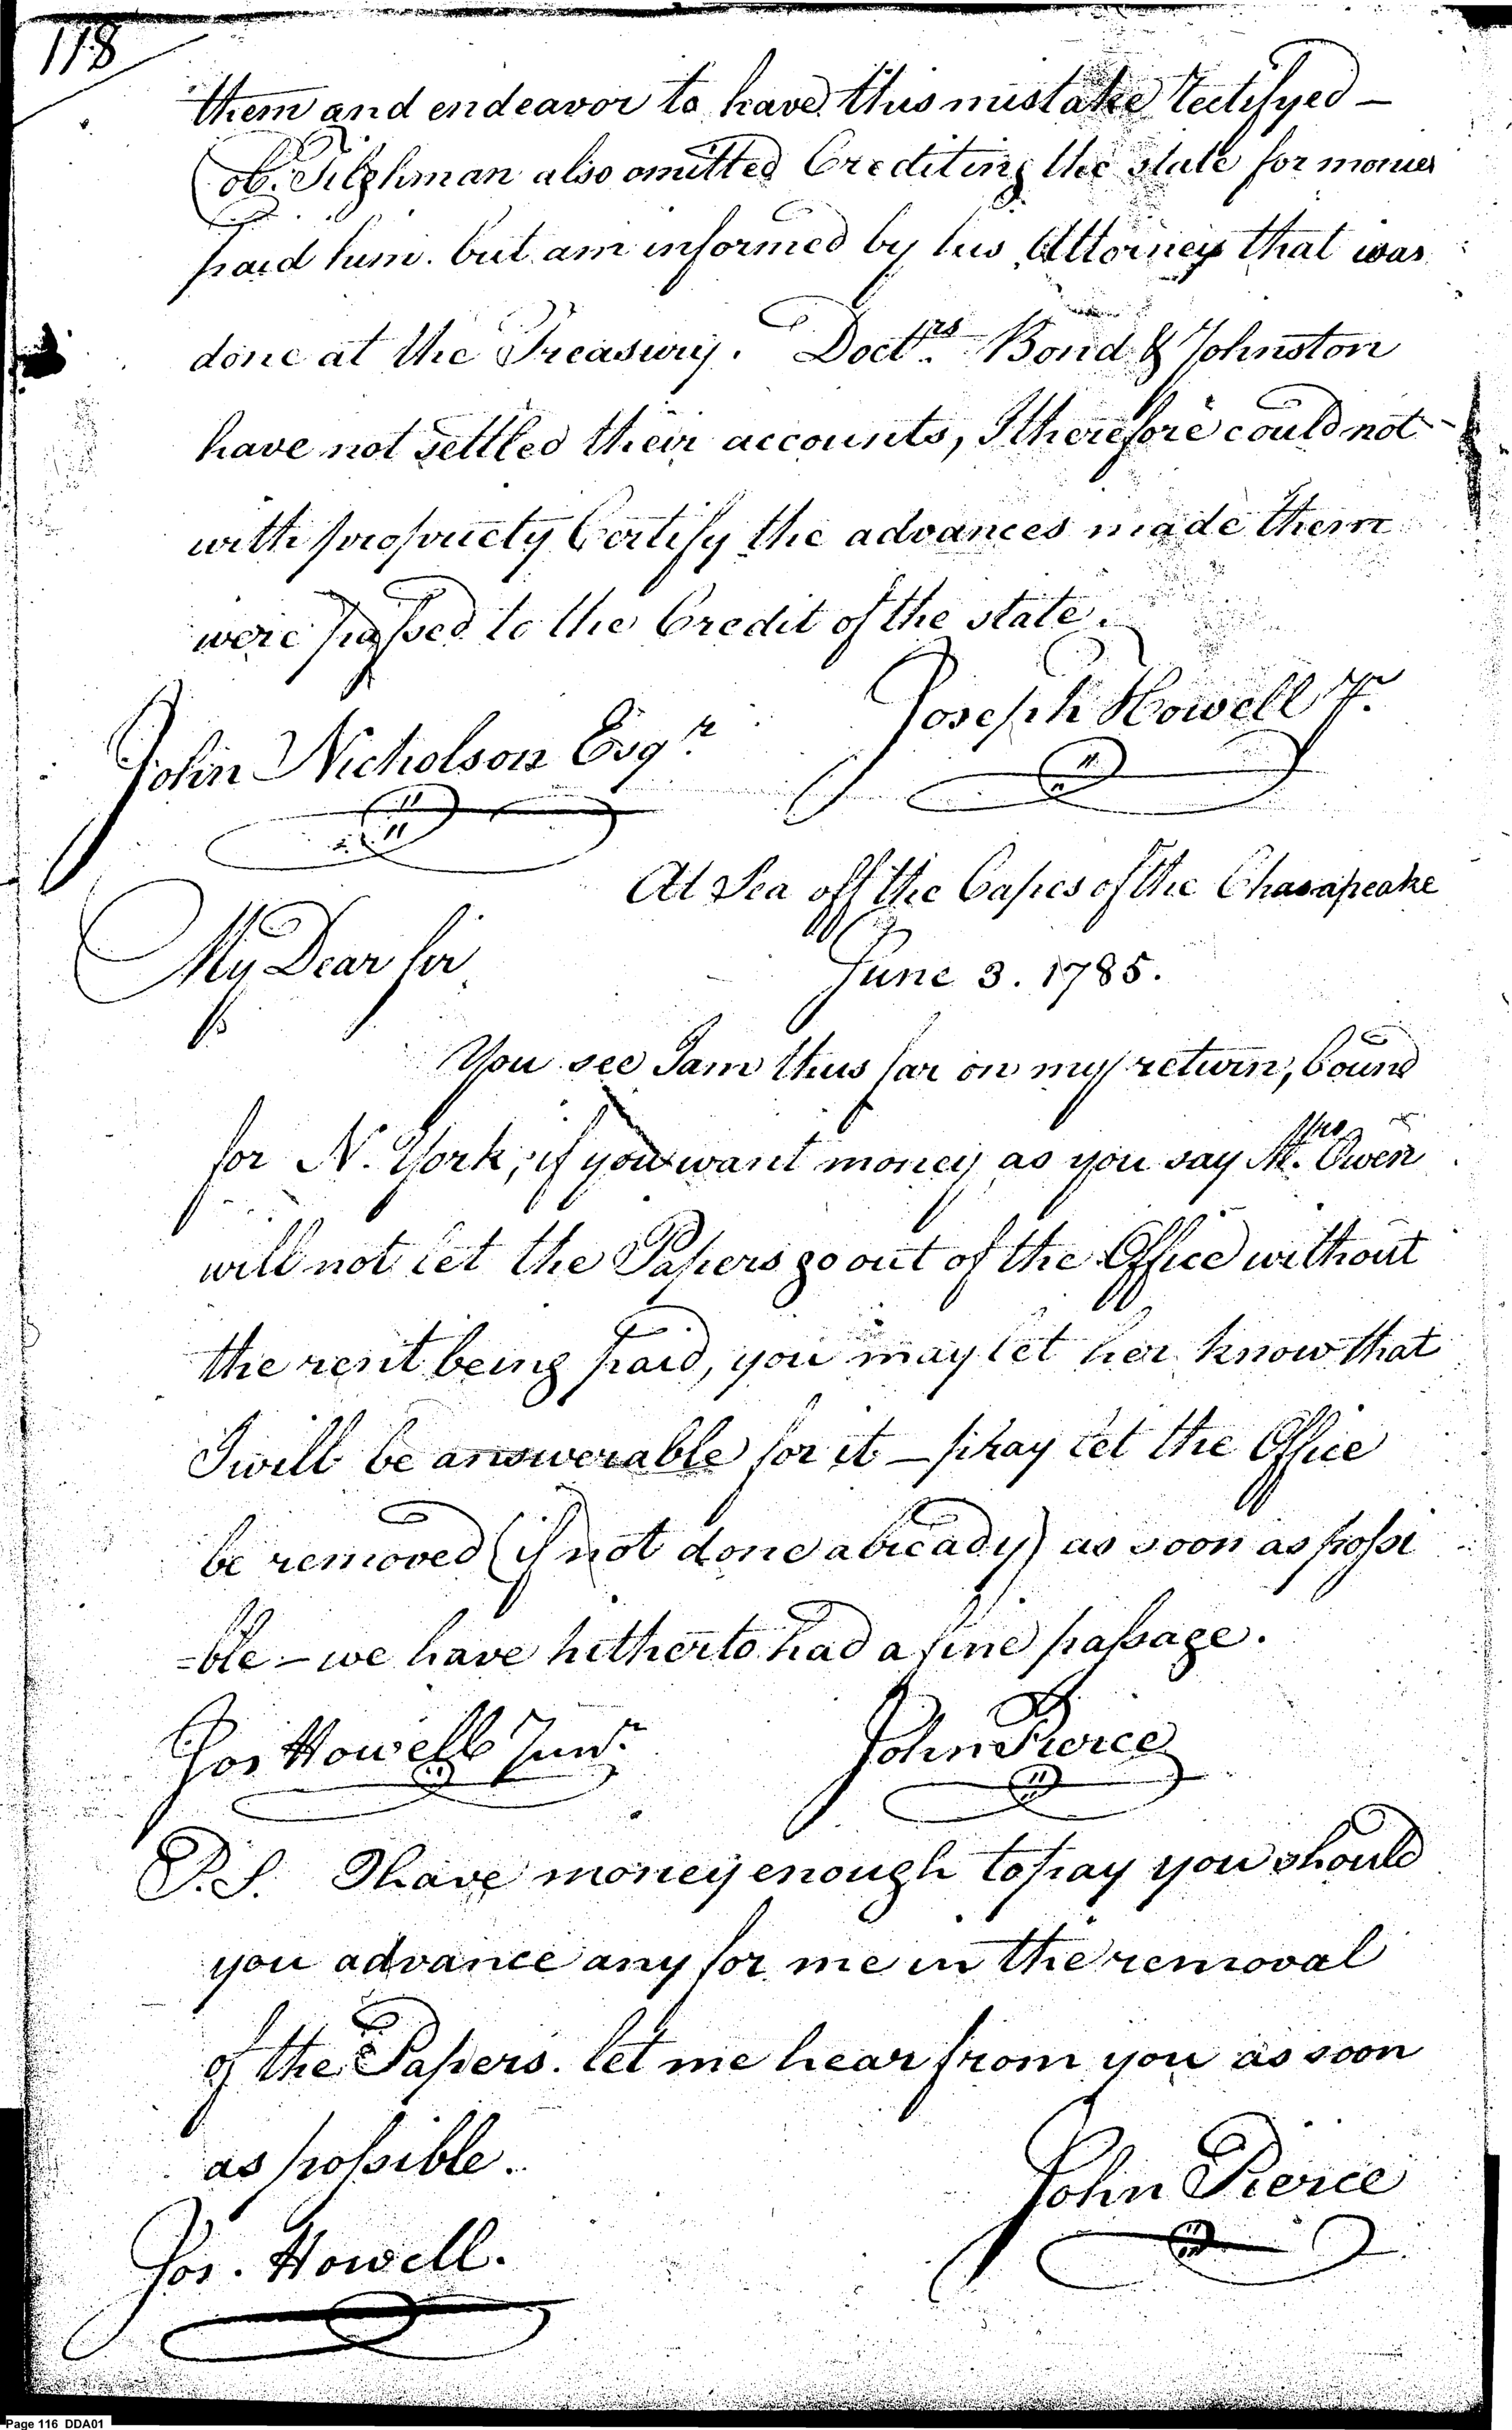 118
them and endeavor to have this mistake rectifyed —
Col. Tilghman also omitted Crediting the state for monies
paid him. but am informed by his Attorney that was
done at the Treasury. Doctrs. Bond & Johnston
have not settled their accounts, I therefore could not
with propriety Certify the advances made them
were passed to the Credit of the state.
Joseph Howell Jr.
John Nicholson Esqr.
At Sea off the Capes of the Chasapeake
My Dear Sir
June 3. 1785.
You see I am thus far on my return, bound
for N. York, if you want money as you say Mrs. Owen
will not let the Papers go out of the Office without
the rent being paid, you may let her know that
I will be answerable for it – pray let the Office
be removed (if not done already) as soon as possi
=ble – we have hitherto had a fine passage.
Jos Howell Junr.
John Pierce
P.S. I have money enough to pay you should
you advance any for me in the removal
of the Papers. let me hear from you as soon
as possible.
John Pierce
Jos. Howell.
Page 116 DDA01